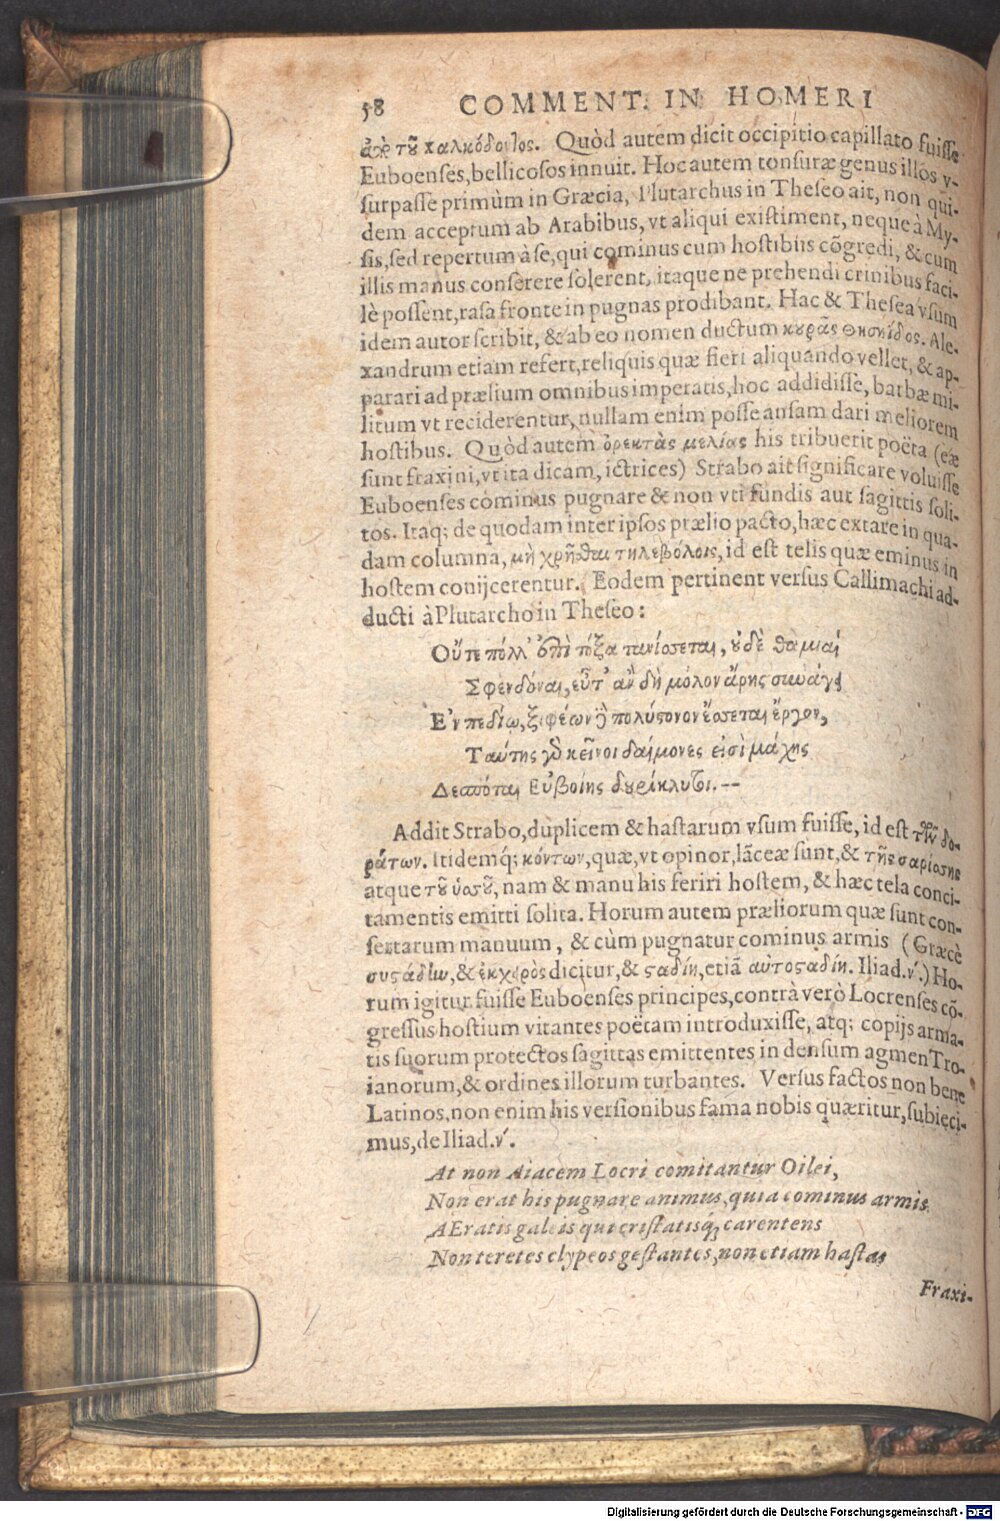 58 COMMENT. IN HOMERI
τοῦ χαλκώδοντος. Quòd autem dicit occipitio capillato fuiſſe
Euboenſes, bellicoſos innuit. Hoc autem tonſuræ genus illos v-
ſurpaſſe primùm in Græcia, Plutarchus in Theſeo ait, non qui-
dem acceptum ab Arabibus, vt aliqui exiſtiment, neque à My-
ſis, ſed repertum à ſe, qui cominus cum hoſtibus cõgredi, & cum
illis manus conſerere ſolerent, itaque ne prehendi crinibus faci-
lè poſſent, raſa fronte in pugnas prodibant. Hac & Theſea vſum
idem autor ſcribit, & ab eo nomen ductum κυρᾶς θησηΐδος. Ale-
xandrum etiam refert, reliquis quæ fieri aliquando vellet, & ap-
parari ad prælium omnibus imperatis, hoc addidiſſe, barbæ mi-
litum vt reciderentur, nullam enim poſſe anſam dari meliorem
hoſtibus. Quòd autem ὀρεκτὰς μελίας his tribuerit poëta (eæ
ſunt fraxini, vt ita dicam, ictrices) Strabo ait ſignificare voluiſſe
Euboenſes cominus pugnare & non vti fundis aut ſagittis ſoli-
tos. Itaq; de quodam inter ipſos prælio pacto, hæc extare in qua-
dam columna, μὴ χρῆσθαι τηλεβόλοις, id eſt telis quæ eminus in
hoſtem conijcerentur. Eodem pertinent verſus Callimachi ad-
ducti à Plutarcho in Theſeo:
Οὔτε πόλλ' ἐπὶ τόξα τανύσσεται, οὐδὲ θαμιαὶ
Σφενδόναι, εὖτ' ἂν δὴ μόλον ἄρης συνάγῃ
Ἐν πεδίῳ, ξιφέων δὲ πολύστονον ἔσσεται ἔργον,
Ταύτης γὰρ κεῖνοι δαίμονες εἰσὶ μάχης
Δεσπόται Εὐβοίης δουρίκλυτοι.--
Addit Strabo, duplicem & haſtarum vſum fuiſſe, id eſt τῶν δο-
ράτων. Itidemq́; κόντων, quæ, vt opinor, lãceæ ſunt, & τῆς σαρίσσης
atque τοῦ ὑσσοῦ, nam & manu his feriri hoſtem, & hæc tela conci-
tamentis emitti ſolita. Horum autem præliorum quæ ſunt con-
ſertarum manuum, & cùm pugnatur cominus armis (Græcè
συστάδην, & ἐκ χειρὸς dicitur, & σταδίην, etiã αὐτοσταδίην. Iliad. ν'.) Ho-
rum igitur fuiſſe Euboenſes principes, contrà verò Locrenſes cõ-
greſſus hoſtium vitantes poëtam introduxiſſe, atq; copijs arma-
tis ſuorum protectos ſagittas emittentes in denſum agmen Tro-
ianorum, & ordines illorum turbantes. Verſus factos non bene
Latinos, non enim his verſionibus fama nobis quæritur, ſubieci-
mus, de Iliad. ν'.
At non Aiacem Locri comitantur Oilei,
Non erat his pugnare animus, quia cominus armis
AEratis galeis qui criſtatisq́; carentens
Non teretes clypeos geſtantes, non etiam haſtas
Fraxi-
Digitalisierung gefördert durch die Deutsche Forschungsgemeinschaft - DFG